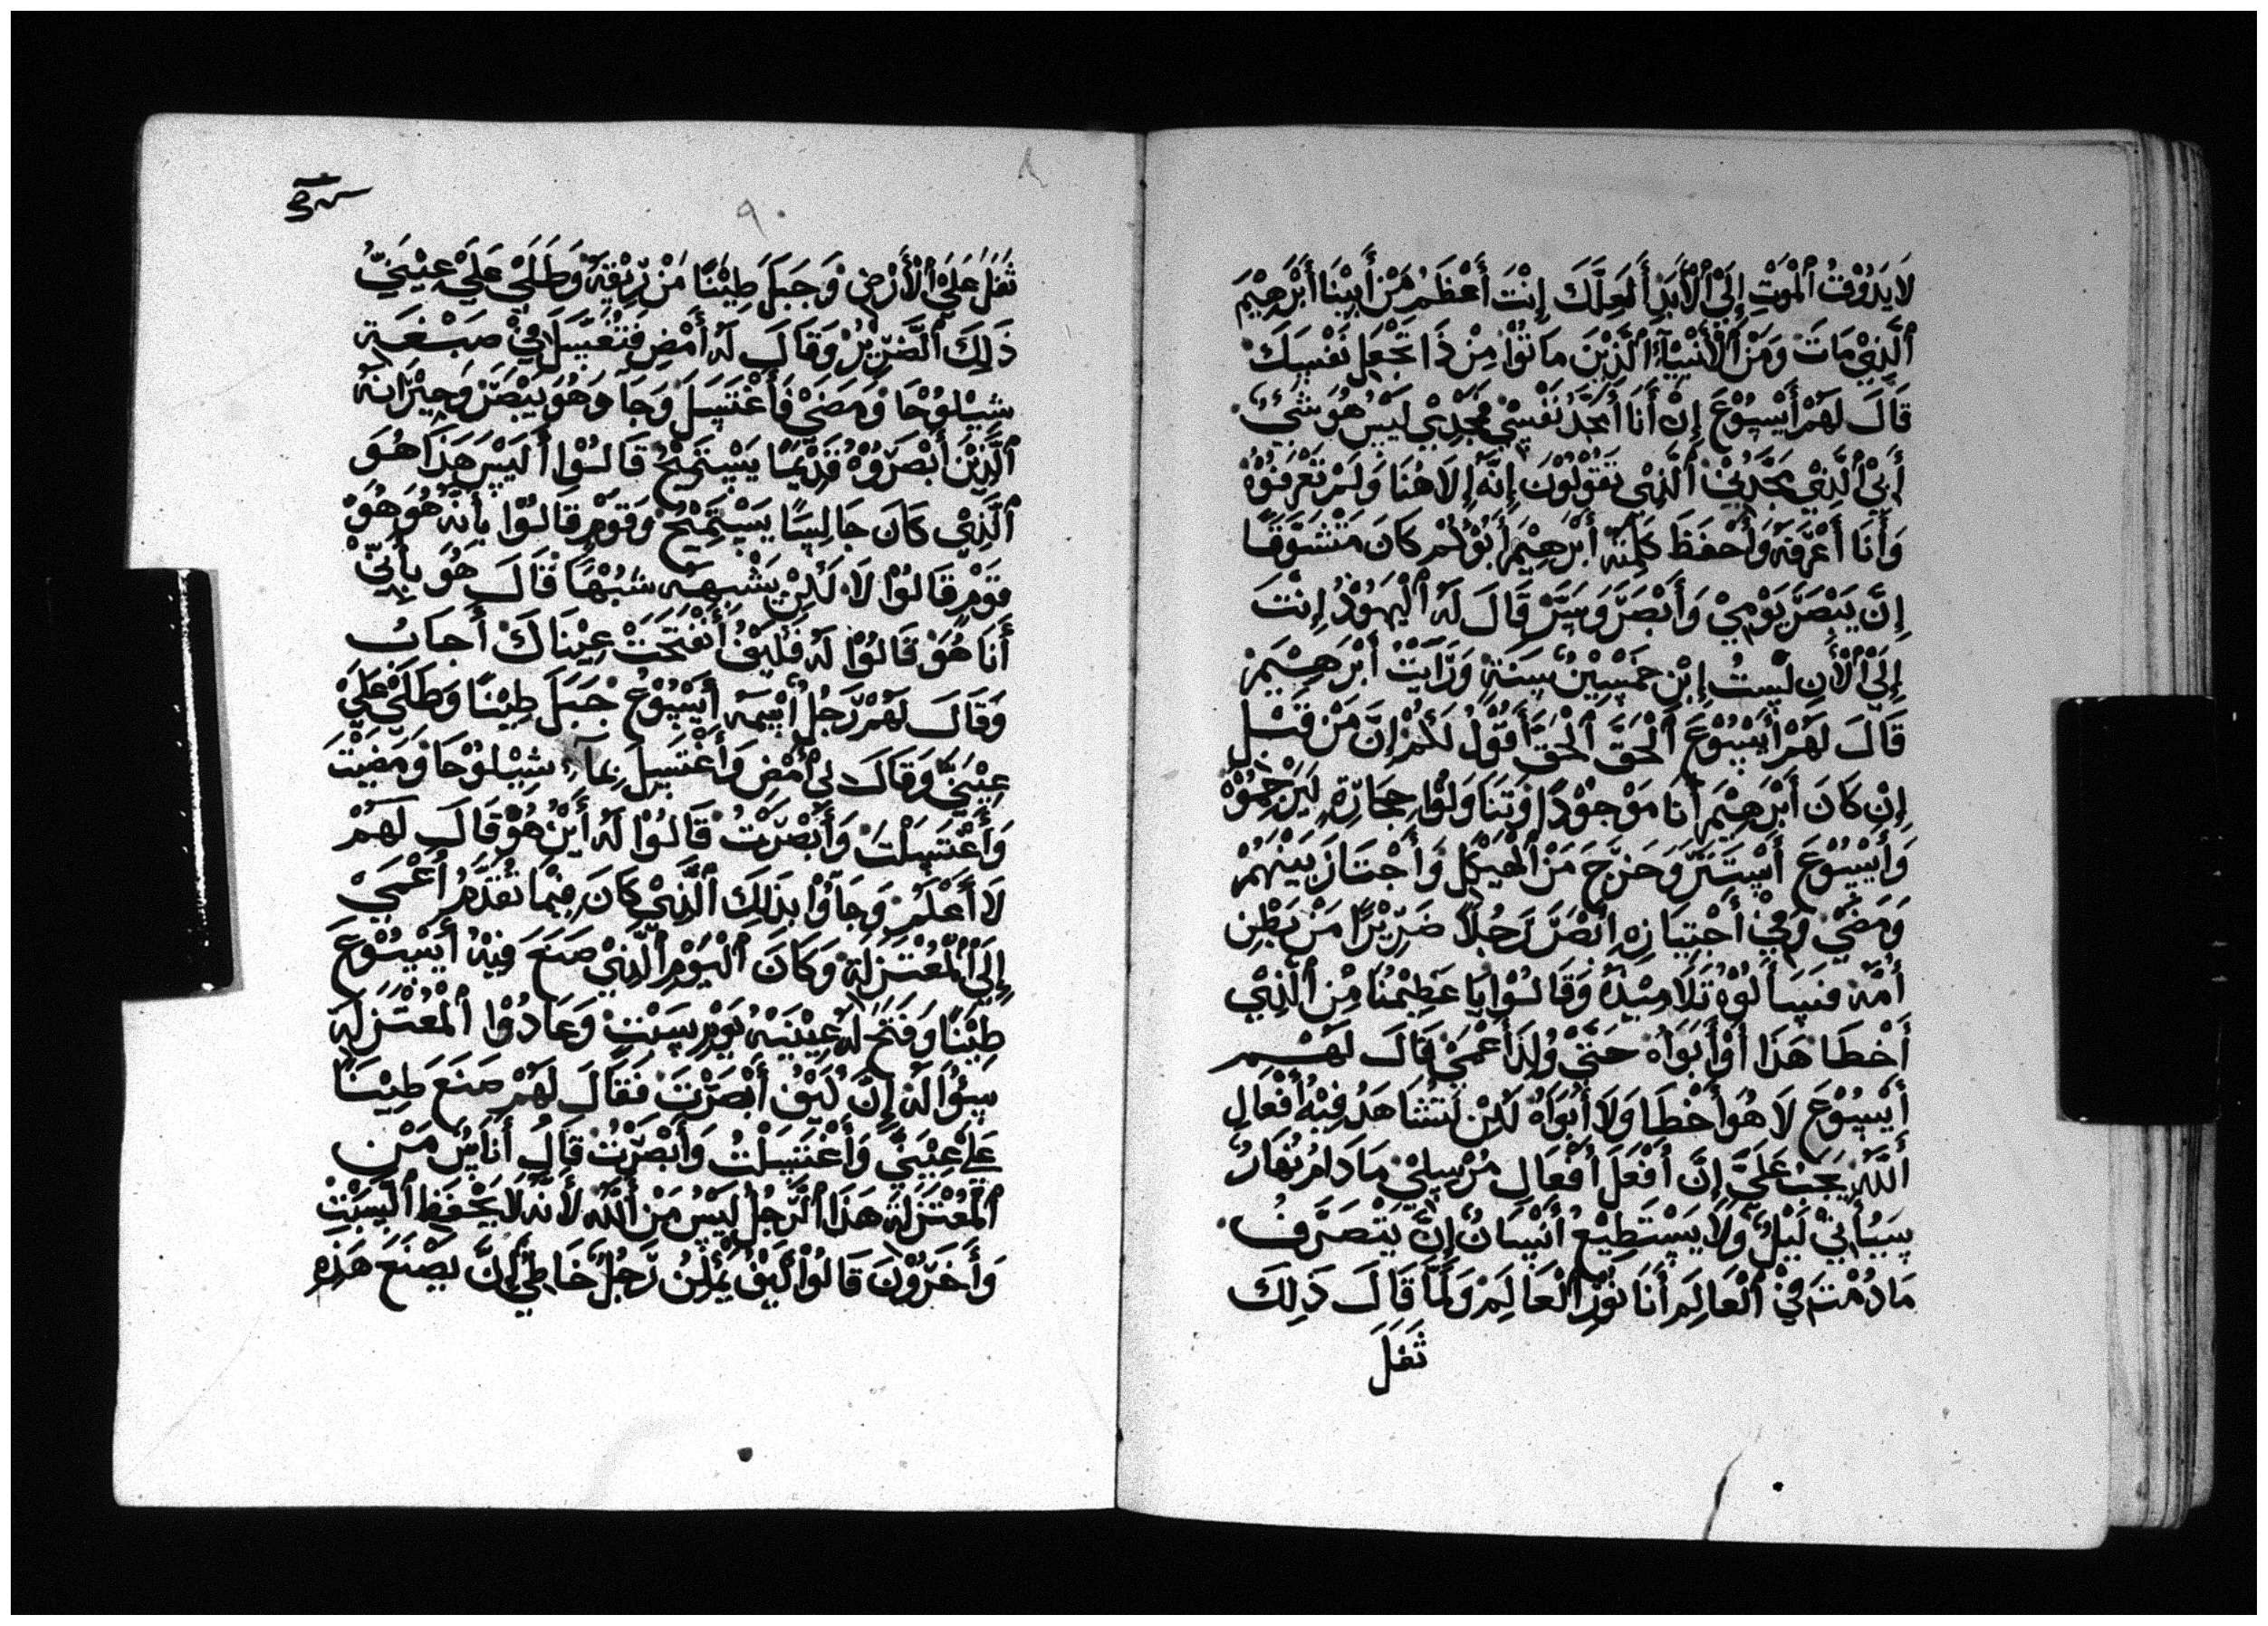 لَا يَذُوْقُ ٱلْمَوْتِ إِلَىْ ٱلْأَبَدِ أَلَعِلَّكَ إِنْتَ أَعْظَمُ مَنْ أَبِيْنَا أَبْرَهِيْمَ
ٱلَّذِيْ مَاتَ وَمَنْ ٱلْأَنْبِيَآءِ ٱلَّذِيْنَ مَاتُوْا مِنْ ذَا تَجْعَلِ نَفْسِكَ
قَالَ لَهَمْ أَيْسُوْعَ إِنْ أَنَا أُمَجَّدُ نَفْسِيْ مَجْدِيْ لَيْسَ هُوَ شَيْءٌ
أَبِيْ ٱلَّذِيْ يَمَجَّدُنِيْ ٱلَّذِيْ تَقُوْلُوْنَ إِنَّهُ إِلَاهُنَا وَلَمْ تَعْرَفُوْهُ
وَأَنَا أَعْرَفِهُ وَأَحْفَظَ كَلِمَتَهُ أَبْرَهِيْمَ أَبُوْكُمْ كَانَ مَتْشَوَّقًا
إِنَّ يَبْصَرَ يَوْمِيْ وَأَبْصَرَ وَسَرَّ قَالَ لَهُ ٱلْيَهُوْدُ إِنْتَ
إِلَىْ ٱلْأَنِ لَسْتُ إِبْنِ خَمْسِيْنُ سَنَةٍ وَرَأَيْتُ أَبْرَهِيْمَ
قَالَ لَهَمْ أَيْسُوْعَ ٱلْحَقَّ ٱلْحَقَ أَقُوْلُ لَكُمْ إِنَّ مَنْ قَبْلِ
إِنِ كَانَ أَبْرَهِيْمَ أَنَا مَوْجُوْدًا وَتَنَاوَلُوْا حِجَارَةٍ لِيَرْجَمُوْهُ
وَأَيْسُوْعَ أَسْتَتَرَ وَخَرَجَ مَنْ ٱلْهَيْكِلِ وَأَجْتَازَ بَيْنَهُمْ
وَمَضَىْ وَفِيْ أَجْتِيَازِهِ أَبْصَرَ رَجُلًا ضَرِيْرًا مَنْ بَطْنِ
أُمَّهُ فَسَأَلُوْهُ تَلَامِيْذُهُ وَقَالُوْا يَا عَظِيْمُنَا مِنْ ٱلَّذِيْ
أَخْطَا هَذَا أَوْ أَبَوَاهُ حَتَّىْ وُلِدَ أَعْمَىْ قَالَ لَهَمِ
أَيْسُوْعَ لَا هُوَ أَخْطَا وَلَا أَبُوَاهُ لَكِنْ لَتُشَاهَدُ فِيْهُ أَفْعَالِ
أَللَّهُ يَجَبُ عَلَيَّ إِنَّ أَفْعَلَ أَفْعَالِ مُرْسِلِيْ مَادَامُ نَهَارٌ
سَيَأْتِيْ لَيْلٌ وَلَا يَسْتَطِيْعُ أَنْسَانٌ إِنَّ يَتْصَرَّفُ
مَادُمْتَ فِيْ ٱلْعَالِمَ أَنَا نُوْرُ ٱلْعَالِمَ وَلَمَّا قَالَ ذَلِكَ
ثَفَلَ
٩
ثَفَلَ عَلَىْ ٱلْأَرْضِ وَجَبَلَ طِيْنًا مَنْ رِيْقِهُ وَطَلَىْ عَلَىْ عِيْنَيَّ
ذَلِكَ ٱلضَّرِيْرُ وَقَالَ لَهُ أَمْضِ فَتُغَسَّلَ فِيْ صَبْغَةِ
شِيْلُوْحَا وَمَضَىْ فَأَغْتَسَلَ وَجَاءَ وَهُوَ يَبْصَرُ وَجِيْرَانَهُ
ٱلَّذِيْنَ أَبْصَرُوْهُ قَدِيْمًا يَسْتَمِيْحُ قَالُوْا أَلَيْسَ هَذَا هُوَ
ٱلَّذِيْ كَانَ جَالِسًا يَسْتَمِيْحُ وَقَوْمٍ قَالُوْا بِأَنَّهُ هُوَ هُوَ
قَوْمٍ قَالُوْا لَا لَكِنْ يَشْبِهِهُ شَبْهًا قَالَ هُوَ بِأَنِّيْ
أَنَا هُوَ قَالُوْا لَهُ فَكَيْفُ أَنْفَتَحَتْ عِيْنَاكَ أَجَابُ
وَقَالَ لَهَمْ رَّجَلُ أُسْمَهُ أَيْسُوْعُ جَبَلَ طِيْنًا وَطَلَىْ عَلَىْ
عِيْنَيَّ وَقَالَ لِيْ أَمْضِ وَأَغْتَسِلَ بِمَآءِ شِيْلُوْحَا وَمَضَيْتَ
وَأَغْتَسَلْتَ وَأَبْصَرْتُ قَالُوْا لَهُ أَيْنُ هُوَ قَالَ لَهَمْ
لَا أَعْلَمُ وَجَآوْا بِذَلِكَ ٱلَّذِيْ كَانَ فِيْمَا تَقَدَّمَ أَعْمَىْ
إِلَىْ ٱلْمُعْتَزَلَةِ وَكَانَ ٱلْيَوْمِ ٱلَّذِيْ صَنَعَ فِيْهُ أَيْسُوْعَ
طِيْنًا وَفَتَحَ لَهُ عِيْنَيْهُ يَوْمِ سَبْتِ وَعَادُوْا ٱلْمُعْتَزِلَةَ
سِئُوْالَهُ إِنَّ كَيْفُ أَبْصَرْتَ فَقَالَ لَهَمْ صَنَعَ طِيْنًا
عَلَىْ عِيْنَيَّ وَأَغْتَسَلْتُ وَأَبْصَرْتُ قَالُ أَنَاسٌ مَنْ
ٱلْمُعْتَزَلَةَ هَذَا ٱلرَّجُلُ لَيْسَ مَنْ أَللَّهُ لَأَنَّهُ لَا يَحْفَظِ ٱلْسَبْتِ
وَأَخَرُوْنَ قَالُوْا كَيْفُ يُمْكِنُ رَجُلٌ خَاطِئٍ إِنَّ يَصْنَعَ هَذِهِ